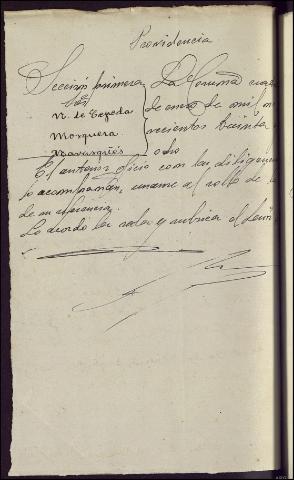 Providencia
Sección primera
Sres
N. de Cepeda
Mosquera
Navarqués
La Coruña
de enero de mil no
vecientos treinta
ocho
El anterior oficio con las diligenc
acompañan, unanse al rollo de
de su referencia.
Lo acordó la sala y rubrica el Señor